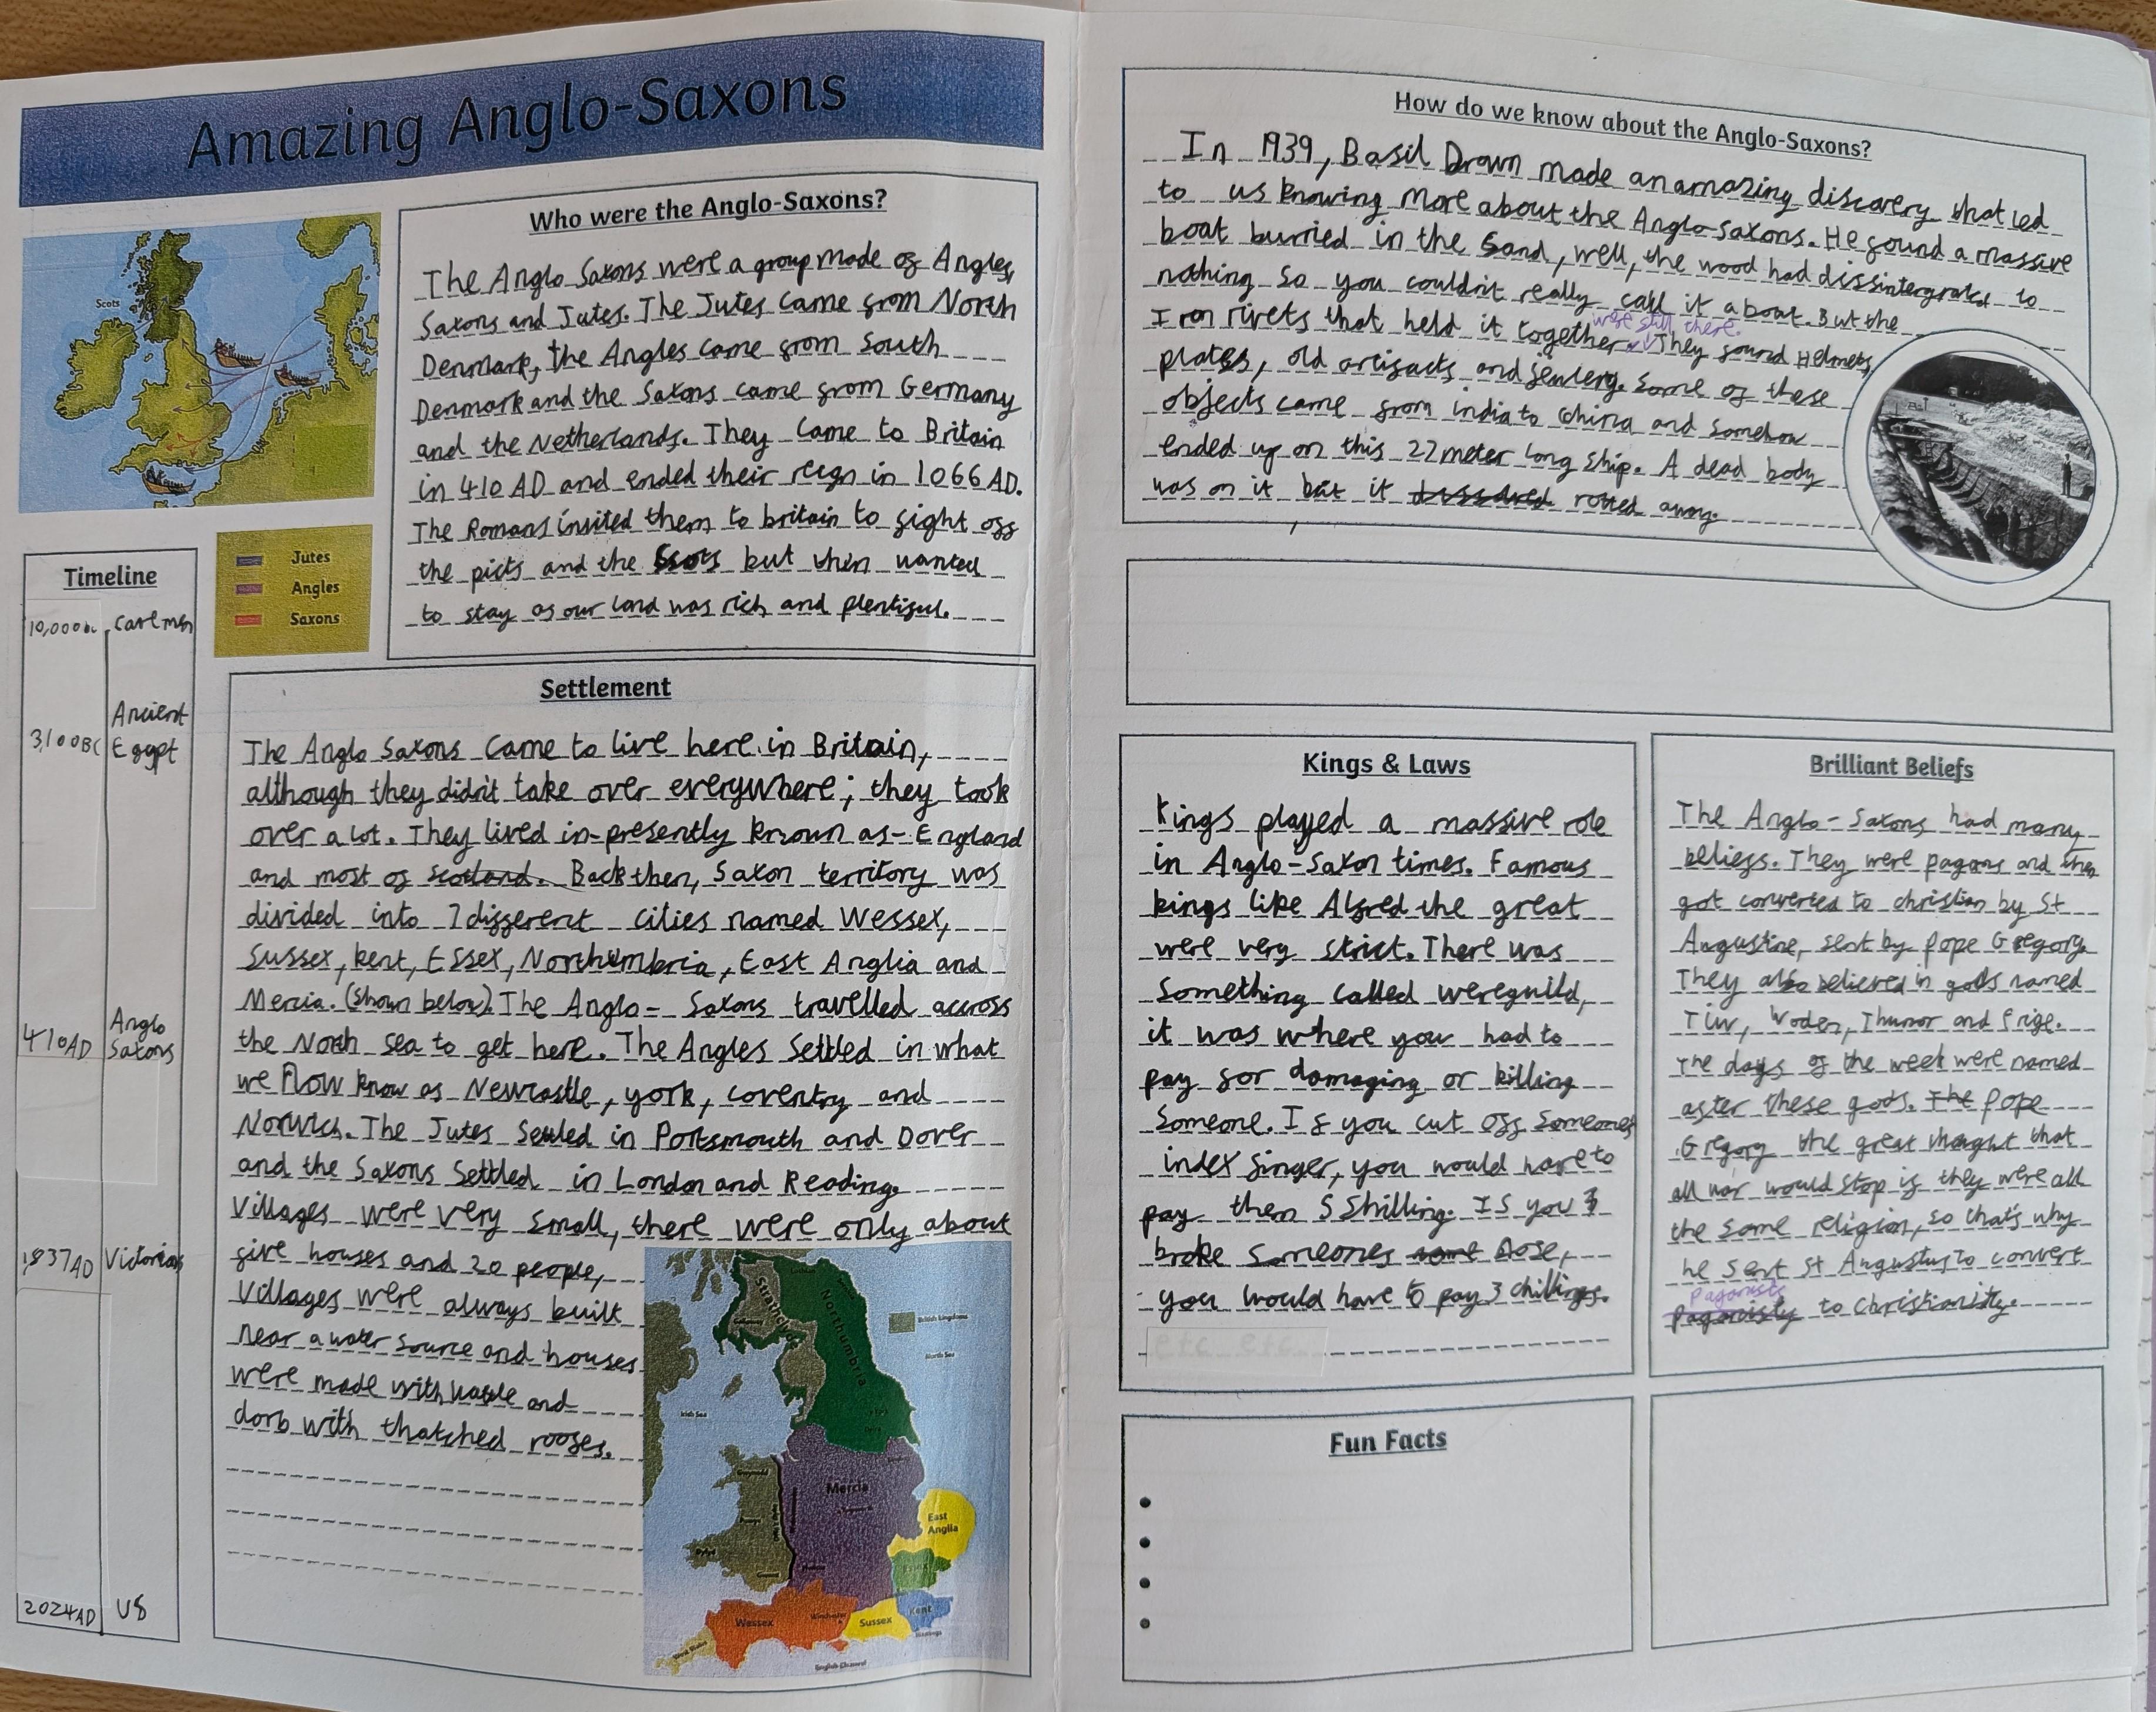 Amazing Anglo-Saxons
Scots
Jutes
Angles
Saxons
Timeline
10,000bc cavemen
3,100BC Ancient Egypt
410AD Anglo Saxons
1837AD Victorians
2024AD US
Who were the Anglo-Saxons?
The Anglo Saxons were a group made of Angles,
Saxons and Jutes. The Jutes came from North
Denmark, the Angles came from South
Denmark and the Saxons came from Germany
and the Netherlands. They came to Britain
in 410 AD and ended their reign in 1066 AD.
The Romans invited them to britain to fight off
the picts and the Scots but then wanted
to stay as our land was rich and plentiful.
Settlement
The Anglo Saxons came to live here in Britain,
although they didn't take over everywhere; they took
over a lot. They lived in-presently known as-England
and most of scotland. Back then, Saxon territory was
divided into 7 different cities named Wessex,
Sussex, kent, Essex, Northumbria, East Anglia and
Mercia. (shown below). The Anglo-Saxons travelled accross
the North sea to get here. The Angles Settled in what
we now know as Newcastle, york, coventry and
Norwich. The Jutes Settled in Portsmouth and Dover
and the Saxons Settled in London and Reading.
Villages were very small, there were only about
five houses and 20 people,
Villages were always built
near a water source and houses
were made with wattle and
dorb with thatched roofes.
Strathclyde
Northumbria
British Kingdoms
North Sea
Irish Sea
Mercia
East Anglia
Essex
Wessex
Winchester
Sussex
Kent
English Channel
How do we know about the Anglo-Saxons?
In 1939, Basil Brown made an amazing discovery that led
to us knowing more about the Anglo-Saxons. He found a massive
boat burried in the Sand, well, the wood had dissintergrated to
nothing so you couldn't really call it a boat. But the
Iron rivets that held it together were still there. They found Helmets,
plates, old artifacts and jewlery. Some of these
objects came from india to china and somehow
ended up on this 27 meter long ship. A dead body
was on it but it dissolved rotted away.
Kings & Laws
Kings played a massive role
in Anglo-Saxon times. Famous
kings like Alfred the great
were very strict. There was
Something called wereguild,
it was where you had to
pay for damaging or killing
Someone. If you cut off someones
index finger, you would have to
pay them 5 Shilling. If you
broke someones nose,
you would have to pay 3 chillings.
etc etc
Brilliant Beliefs
The Anglo-Saxons had many
beliefs. They were pagans and then
got converted to christian by St
Augustine, sent by pope Gregory.
They also believed in gods named
Tiw, Woden, Thunor and frige.
The days of the week were named
after these gods. The pope
Gregory the great thought that
all war would stop if they were all
the same religion, so that's why
he sent St Augustus to convert
Paganists
paganisty to Christianity.
Fun Facts